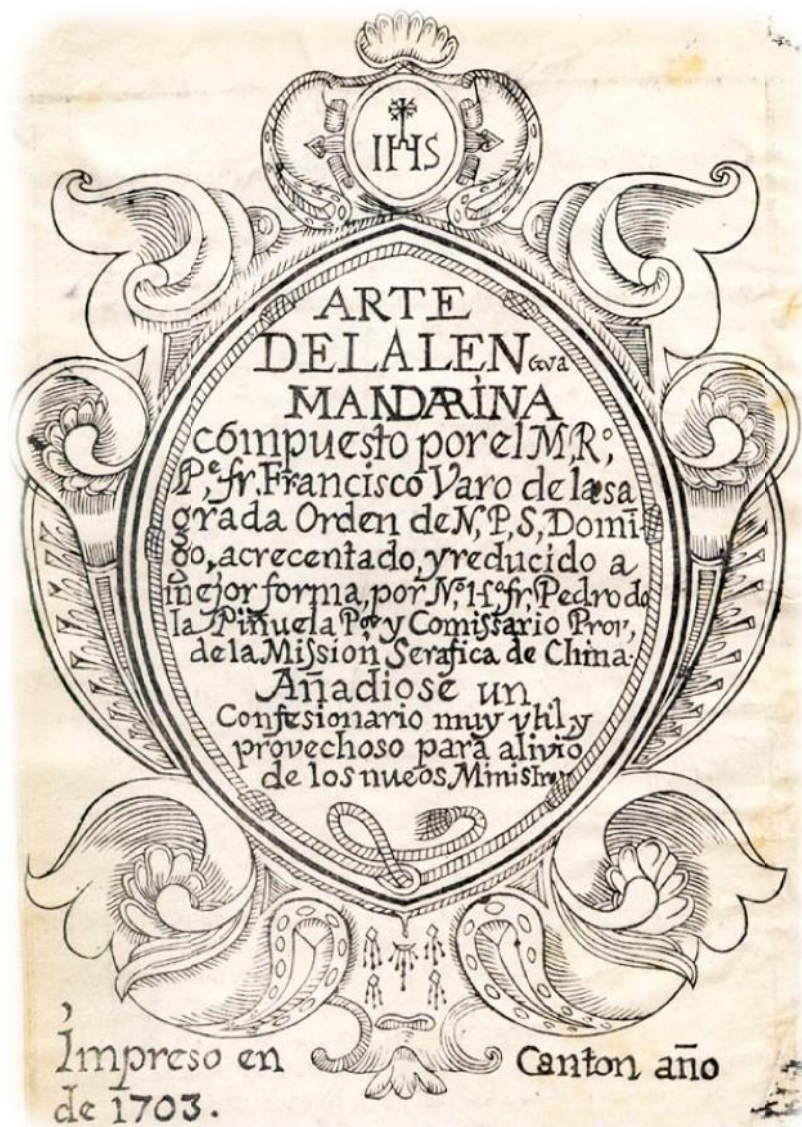 IHS
ARTE
DELALENGVA
MANDARINA
compuesto por el M,R°;
P,e fr. Francisco Varo de la sa
grada Orden de N, P, S, Domi-
go, acrecentado, y reducido a
mejor forma, por N,o H,o fr, Pedro de
la Piñuela P,or y Comissario Prov,
de la Mission Serafica de China.
Añadiose un
Confesionario muy vtil, y
provechoso para alivio
de los nueos Ministros
Impreso en Canton año
de 1703.